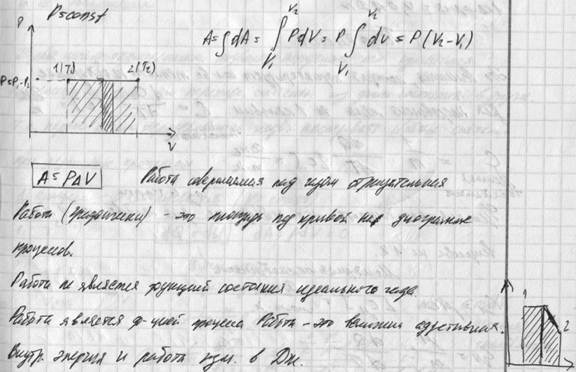 P=const
A=∫dA= ∫PdV= P ∫dv = P(V₂-V₁)
V₂ V₂
V₁ V₁
P
1(T₁) 2(T₂)
V
A=PΔV Работа совершаемая над газом отрицательная
Работа (графически) - это площадь под кривой на диаграмме
процесов.
Работа не является функцией состояния идеального газа
Работа является ф-цией процеса Работа - это величина аддетивная.
Внутр. энергия и работа изм. в Дж.
1
2